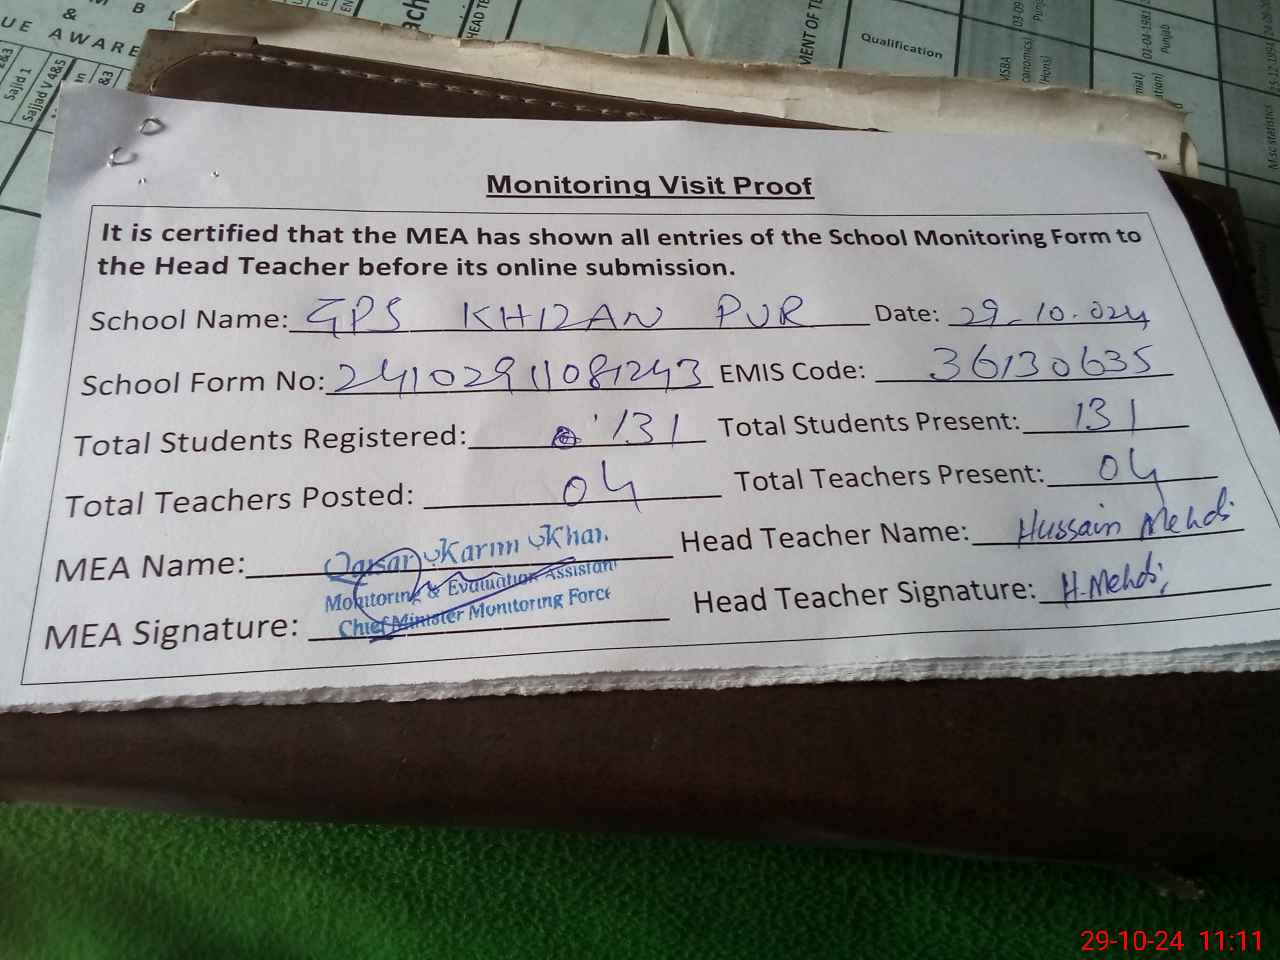 UE AWARE
Sajid 1
Sajjad V 4&5
HEAD TE
MENT OF TE
Qualification
01-04-1981
Punjab
M.sc statistics
Monitoring Visit Proof
It is certified that the MEA has shown all entries of the School Monitoring Form to
the Head Teacher before its online submission.
School Name: GPS KHIZAN PUR Date: 29-10-024
School Form No: 24102911081243 EMIS Code: 36130635
Total Students Registered: 131 Total Students Present: 131
Total Teachers Posted: 04 Total Teachers Present: 04
MEA Name: Qaisar Karim Khan Head Teacher Name: Hussain Mehdi
Monitoring & Evaluation Assistant
MEA Signature: Chief Minister Monitoring Force Head Teacher Signature: H.Mehdi
29-10-24 11:11